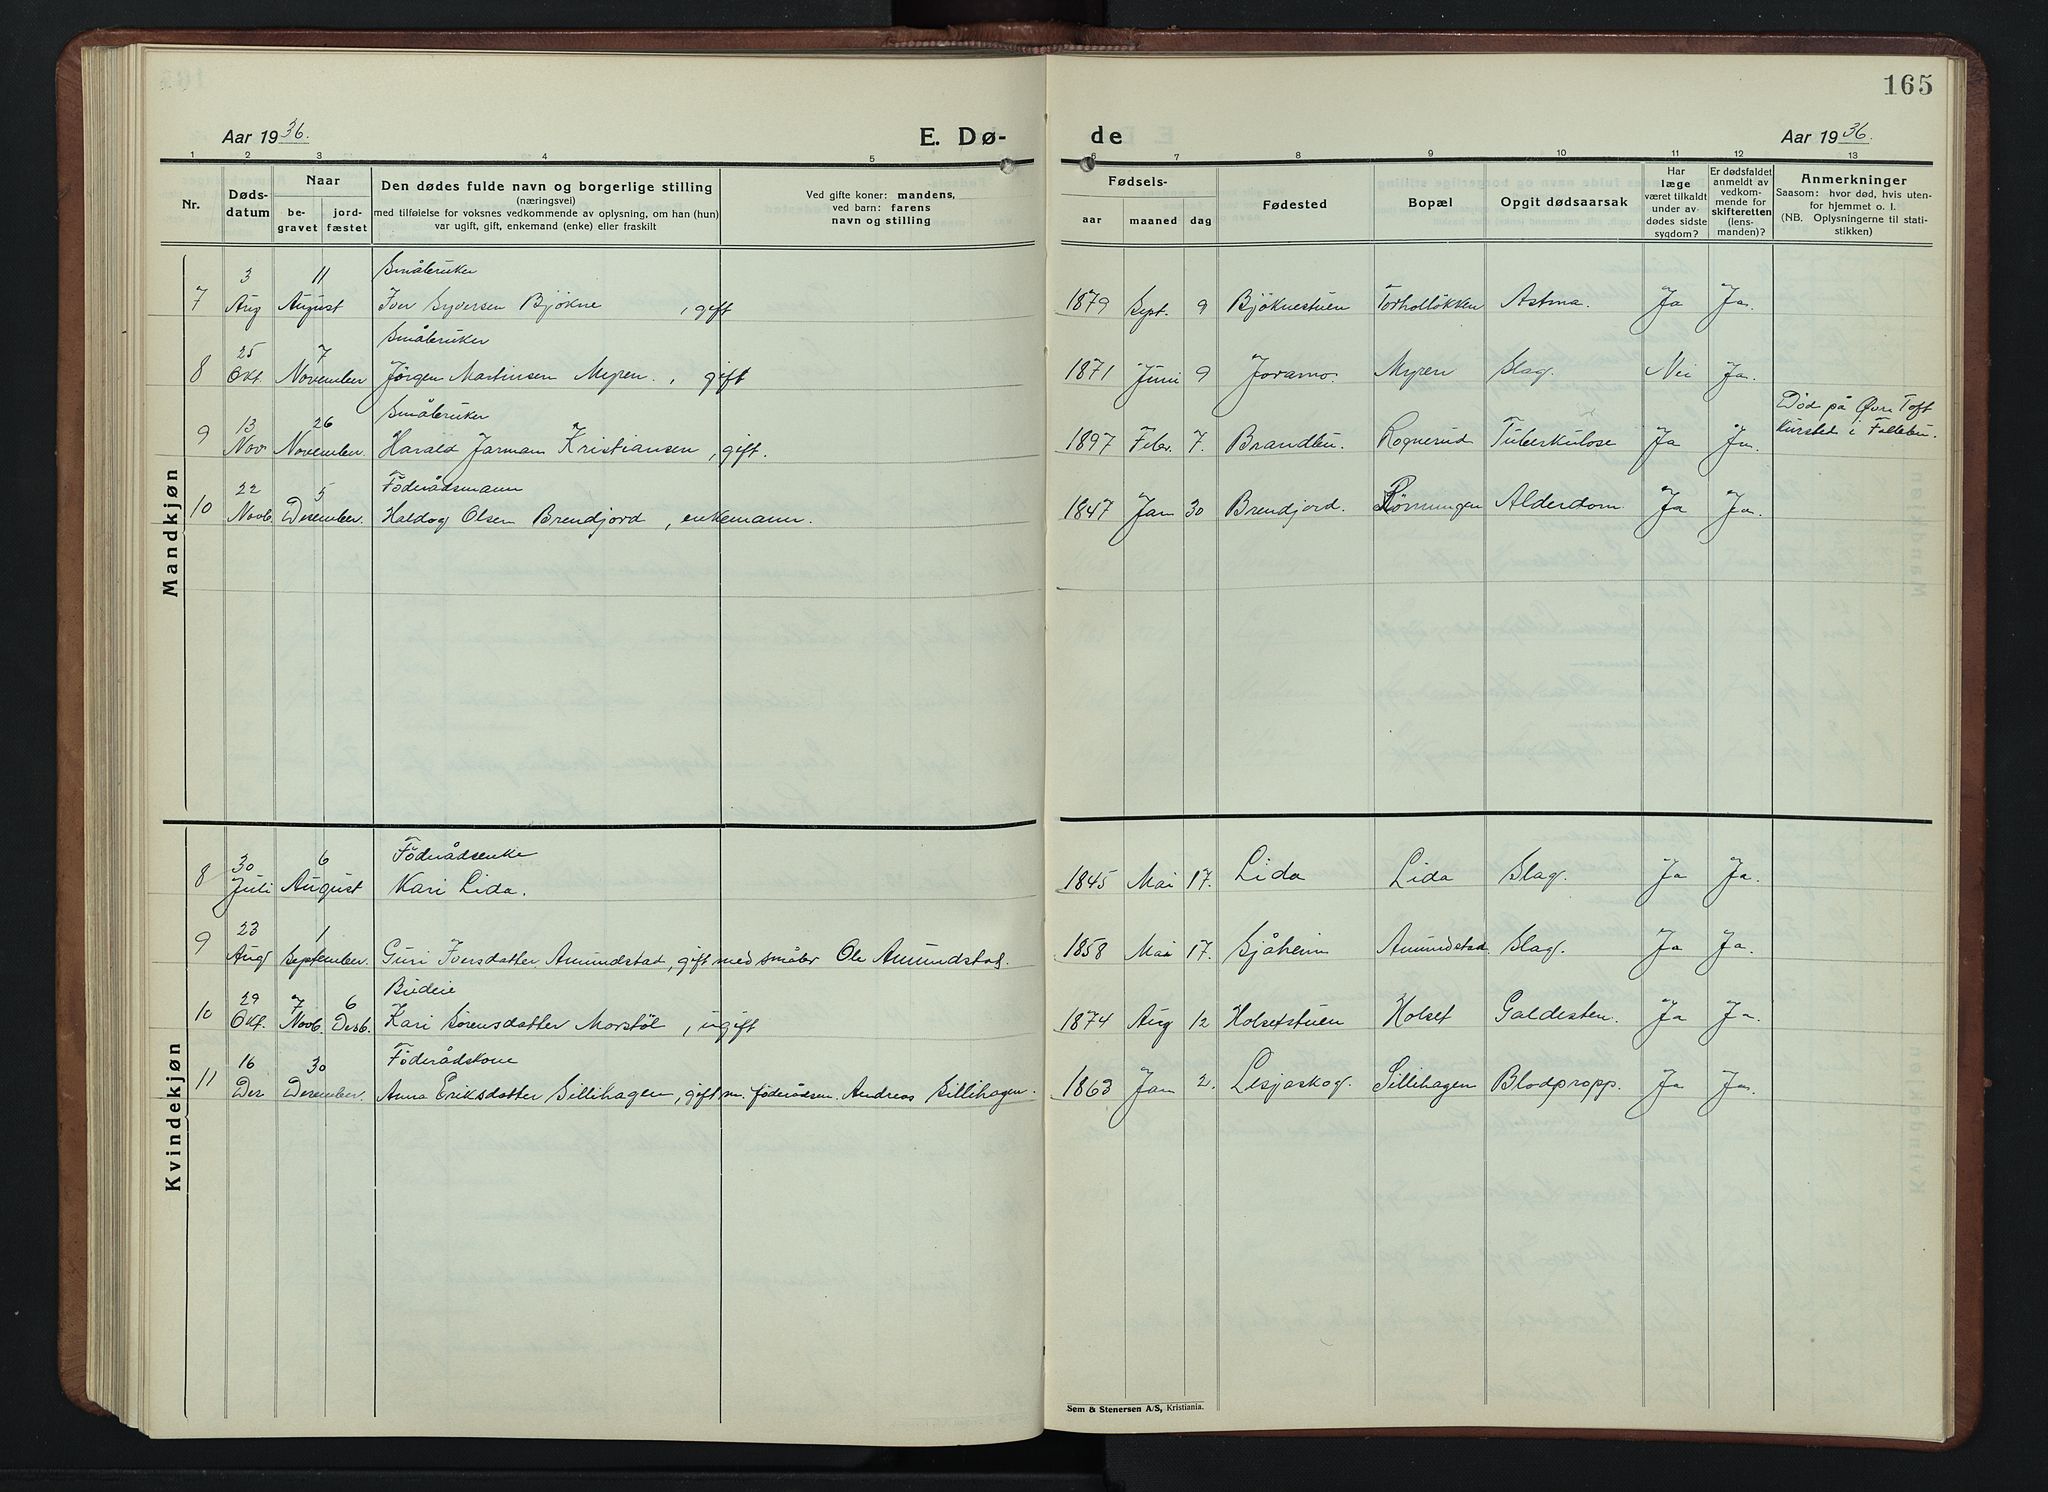 165
Aar 1936.
E. Dø-
de
Aar 1936.
1 2 3 4 5 6 7 8 9 10 11 12 13
Nr.
Døds-
datum
Naar
be-
gravet
jord-
fæstet
Den dødes fulde navn og borgerlige stilling
(næringsvei)
med tilføielse for voksnes vedkommende av oplysning, om han (hun)
var ugift, gift, enkemand (enke) eller fraskilt
Ved gifte koner: mandens,
ved barn: farens
navn og stilling
Fødsels-
aar maaned dag
Fødested
Bopæl
Opgit dødsaarsak
Har
læge
været tilkaldt
under av-
dødes sidste
sygdom?
Er dødsfaldet
anmeldt av
vedkom-
mende for
skifteretten
(lens-
manden)?
Anmerkninger
Saasom: hvor død, hvis uten-
for hjemmet o. l.
(NB. Oplysningerne til stati-
stikken)
Mandkjøn
3 11 Småbruker
7 Aug August Iver Syversen Bjøkne , gift 1879 Sept. 9 Bjöknestuen Torholløkken Astma. Ja Ja.
25 7 Småbruker
8 Okt. November Jørgen Martinsen Myren. , gift 1871 Juni 9 Joramo. Myren Slag. Nei Ja.
13 26 Småbruker Død på Øvre Toft
9 Nov. November. Harald Jarmann Kristiansen, gift. 1897 Febr. 7. Brandbu. Rognerud Tuberkulose Ja Ja. kursted i Follebu.
22 5 Föderådsmann
10 Novb. Desember. Haldog Olsen Brendjord, enkemann. 1847 Jan 30 Brendjord. Rönningen Alderdom. Ja Ja.
Kvindekjøn
30 6 Föderådsenke
8 Juli August Kari Lida. 1845 Mai 17. Lida Lida Slag. Ja Ja.
23 1
9 Aug September. Guri Iversdatter Amundstad, gift med småbr Ole Amundstad. 1858 Mai 17. Sjåheim Amundstad. Slag. Ja Ja.
29 7 6 Budeie
10 Okt. Novb. Desb. Kari Sörensdatter Morstöl, ugift 1874 Aug 12 Holsetstuen Holset Galdesten. Ja Ja.
16 30 Föderådskone
11 Des Desember. Anna Eriksdatter Sillihagen, gift m. föderådsm. Andreas Sillihagen. 1863 Jan 2. Lesjaskog. Sillihagen Blodpropp. Ja Ja.
Sem & Stenersen A/S, Kristiania.